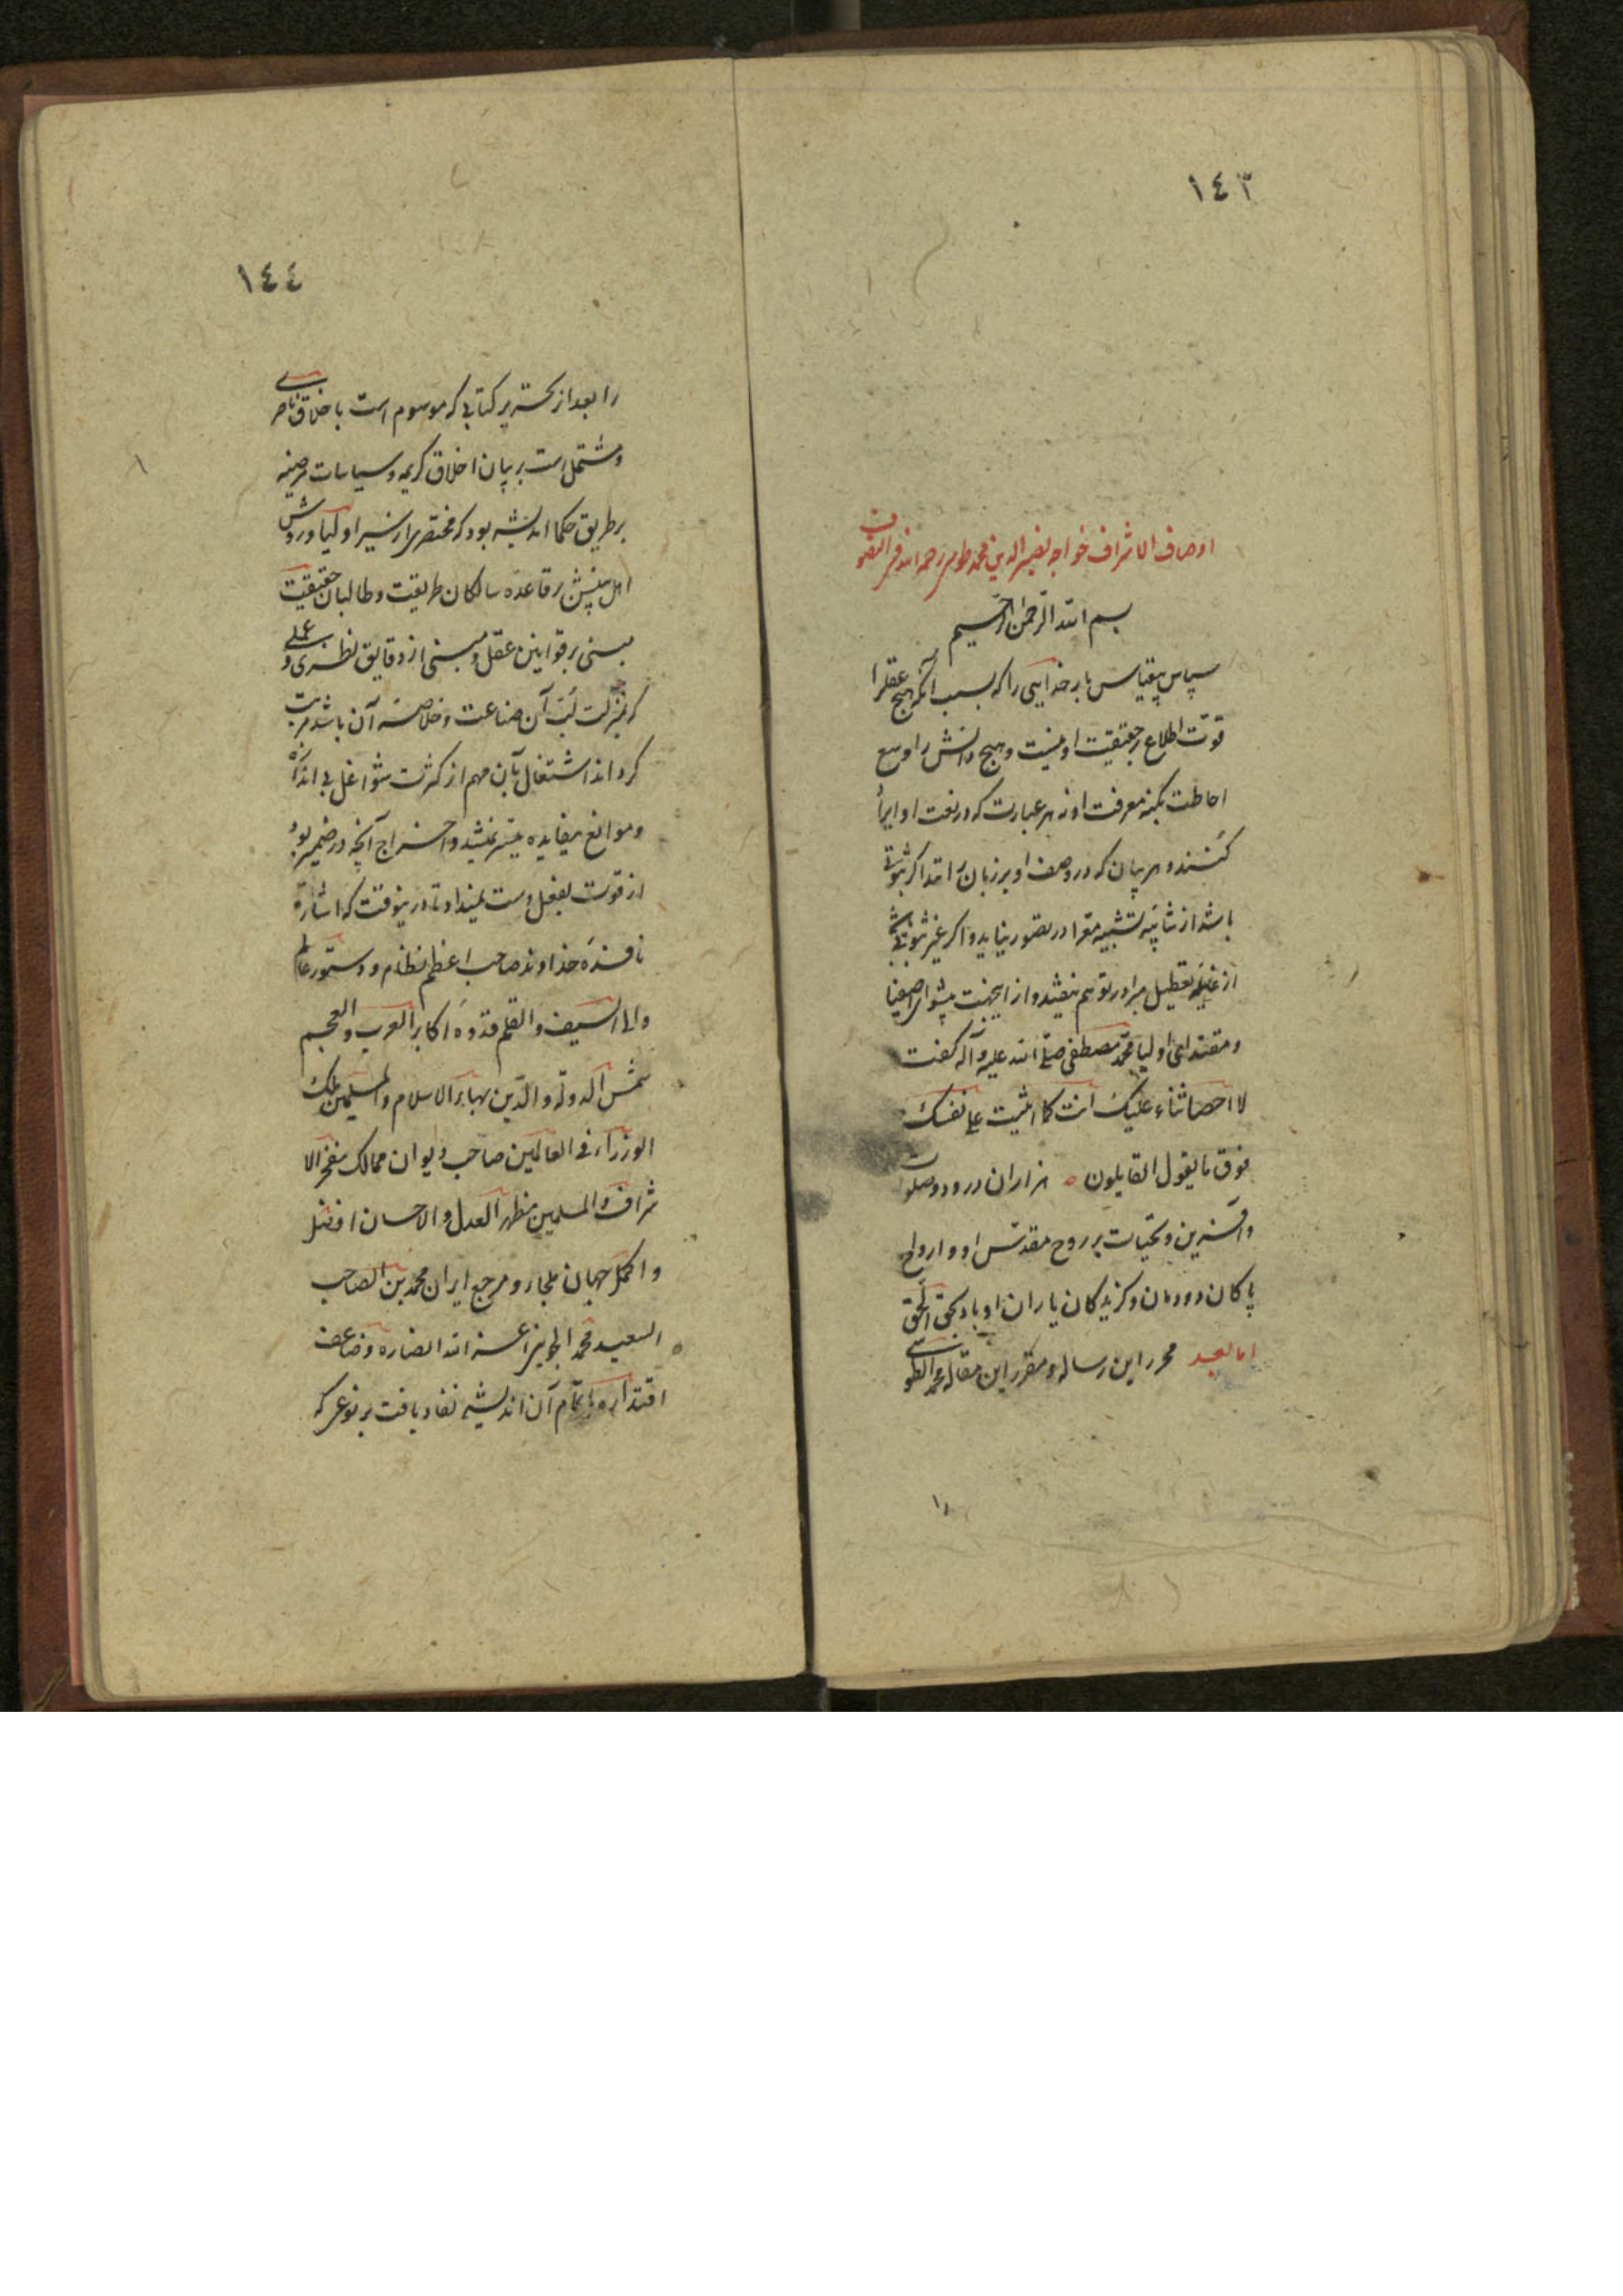 ١٤٣
اوصاف الاشراف خواجه نصیر الدین محمد طوسی رحمه الله فی التصوف
بسم الله الرحمن الرحیم
سپاس بیقیاس بار خدایی را که بسبب آنکه هیچ عقل را
قوّت اطلاع بر حقیقت او نیست و هیچ دانش را وسع
احاطت بکنه معرفت او نه هر عبارت که در نعت او ایراد
کنند و هر بیان که در وصف او بر زبان رانند اگر ثبوتی
باشد از شائبه تشبیه معرّا در تصور نیاید و اگر غیر ثبوتی باشد
از غایله تعطیل مبرا در توهم نیفتد و از اینجهت پیشوای اصفیا
و مقتدای اولیا محمّد مصطفی صلی الله علیه و آله گفت
لا احصا ثناء علیک انت کما اثنیت علی نفسک
فوق ما یقول القایلون ه هزاران درود و صلوات
و آفرین و تحیّات بر روح مقدّس او و ارواح
پاکان دودمان و گزیدگان یاران او باد بحق الحق
اما بعد محرر این رساله و مقرر این مقاله محمد الطوسی
١٤٤
را بعد از تحریر کتابی که موسوم است باخلاق ناصری
و مشتمل است بر بیان اخلاق کریمه و سیاسات مرضیه
بر طریق حکما اندیشه بود که مختصری از سیر اولیا و روش
اهل بینش بر قاعده سالکان طریقت و طالبان حقیقت
مبنی بر قوانین عقل و مبنی از دقایق نظری و عملی
که بمنزلت لبّ آن صناعت و خلاصه آن باشد مرتب
کرداند اشتغال بآن مهم از کثرت شواغل بی اندازه
و موانع بیفایده میسّر نمیشد و اخراج آنچه در ضمیر بود
از قوت بفعل دست نمیداد تا درینوقت که اشارة
نافذه خداوند صاحب اعظم نظام و دستور عالم
والی السیف و القلم قدوه اکابر العرب و العجم
شمس الدوله و الدّین بهاء الاسلام و المسلمین ملک
الوزراء فی العالمین صاحب دیوان ممالک مفخر الا
شراف و المسلمین مظهر العدل و الاحسان افضل
و اکمل جهان ملجاء و مرجع ایران محمد بن الصاحب
السعید محمد الجوینی اعز الله انصاره و ضاعف
اقتداره باتمام آن اندیشه نفاد یافت بر نوعی که